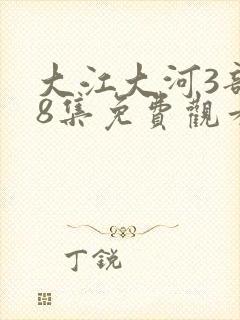 大江大河3部
8集免費觀看
丁銳